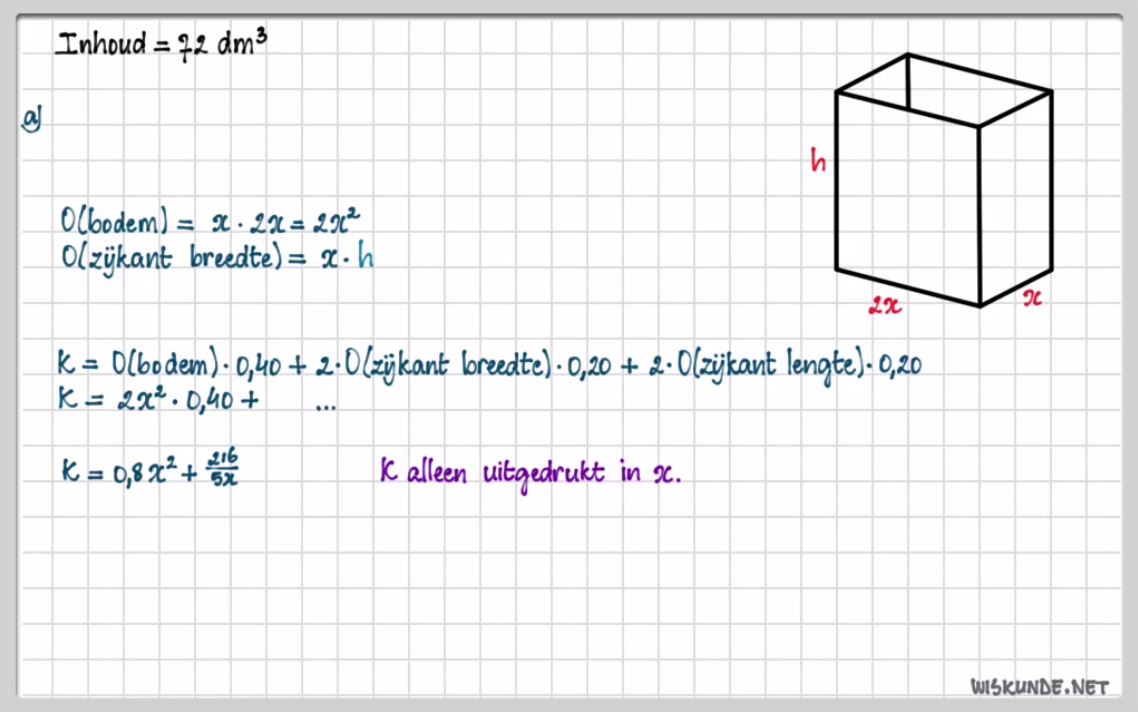 Inhoud = 72 dm³
a)
h
O(bodem) = x · 2x = 2x²
O(zijkant breedte) = x · h
2x
x
K = O(bodem) · 0,40 + 2 · O(zijkant breedte) · 0,20 + 2 · O(zijkant lengte) · 0,20
K = 2x² · 0,40 + ...
K = 0,8x² + 216/5x K alleen uitgedrukt in x.
WISKUNDE.NET